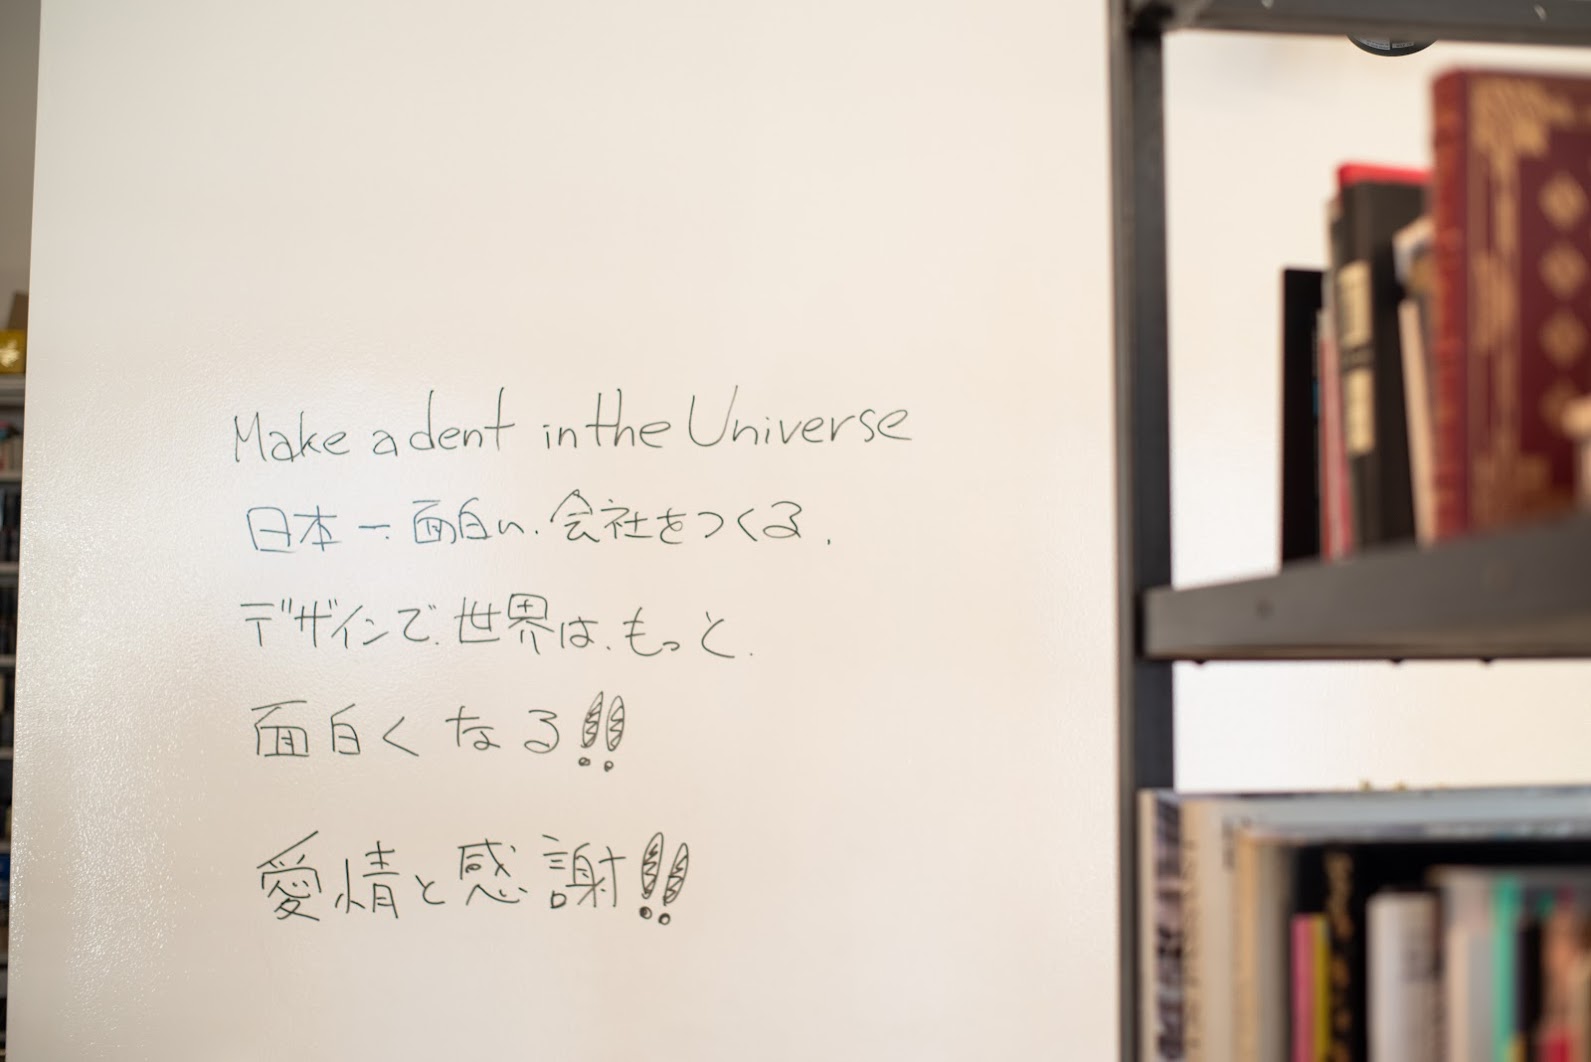 Make a dent in the Universe
日本一.面白い.会社をつくる.
デザインで.世界は.もっと.
面白くなる!!
愛情と感謝!!